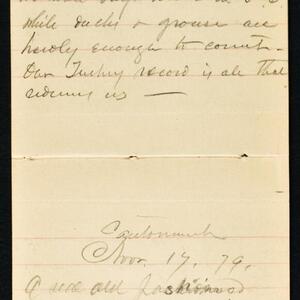 while ducks & grouse are
hardly enough to count -
Our Turkey record is all that
redeems us —
Cantonment
Nov. 17. 79.
A nice old fashioned